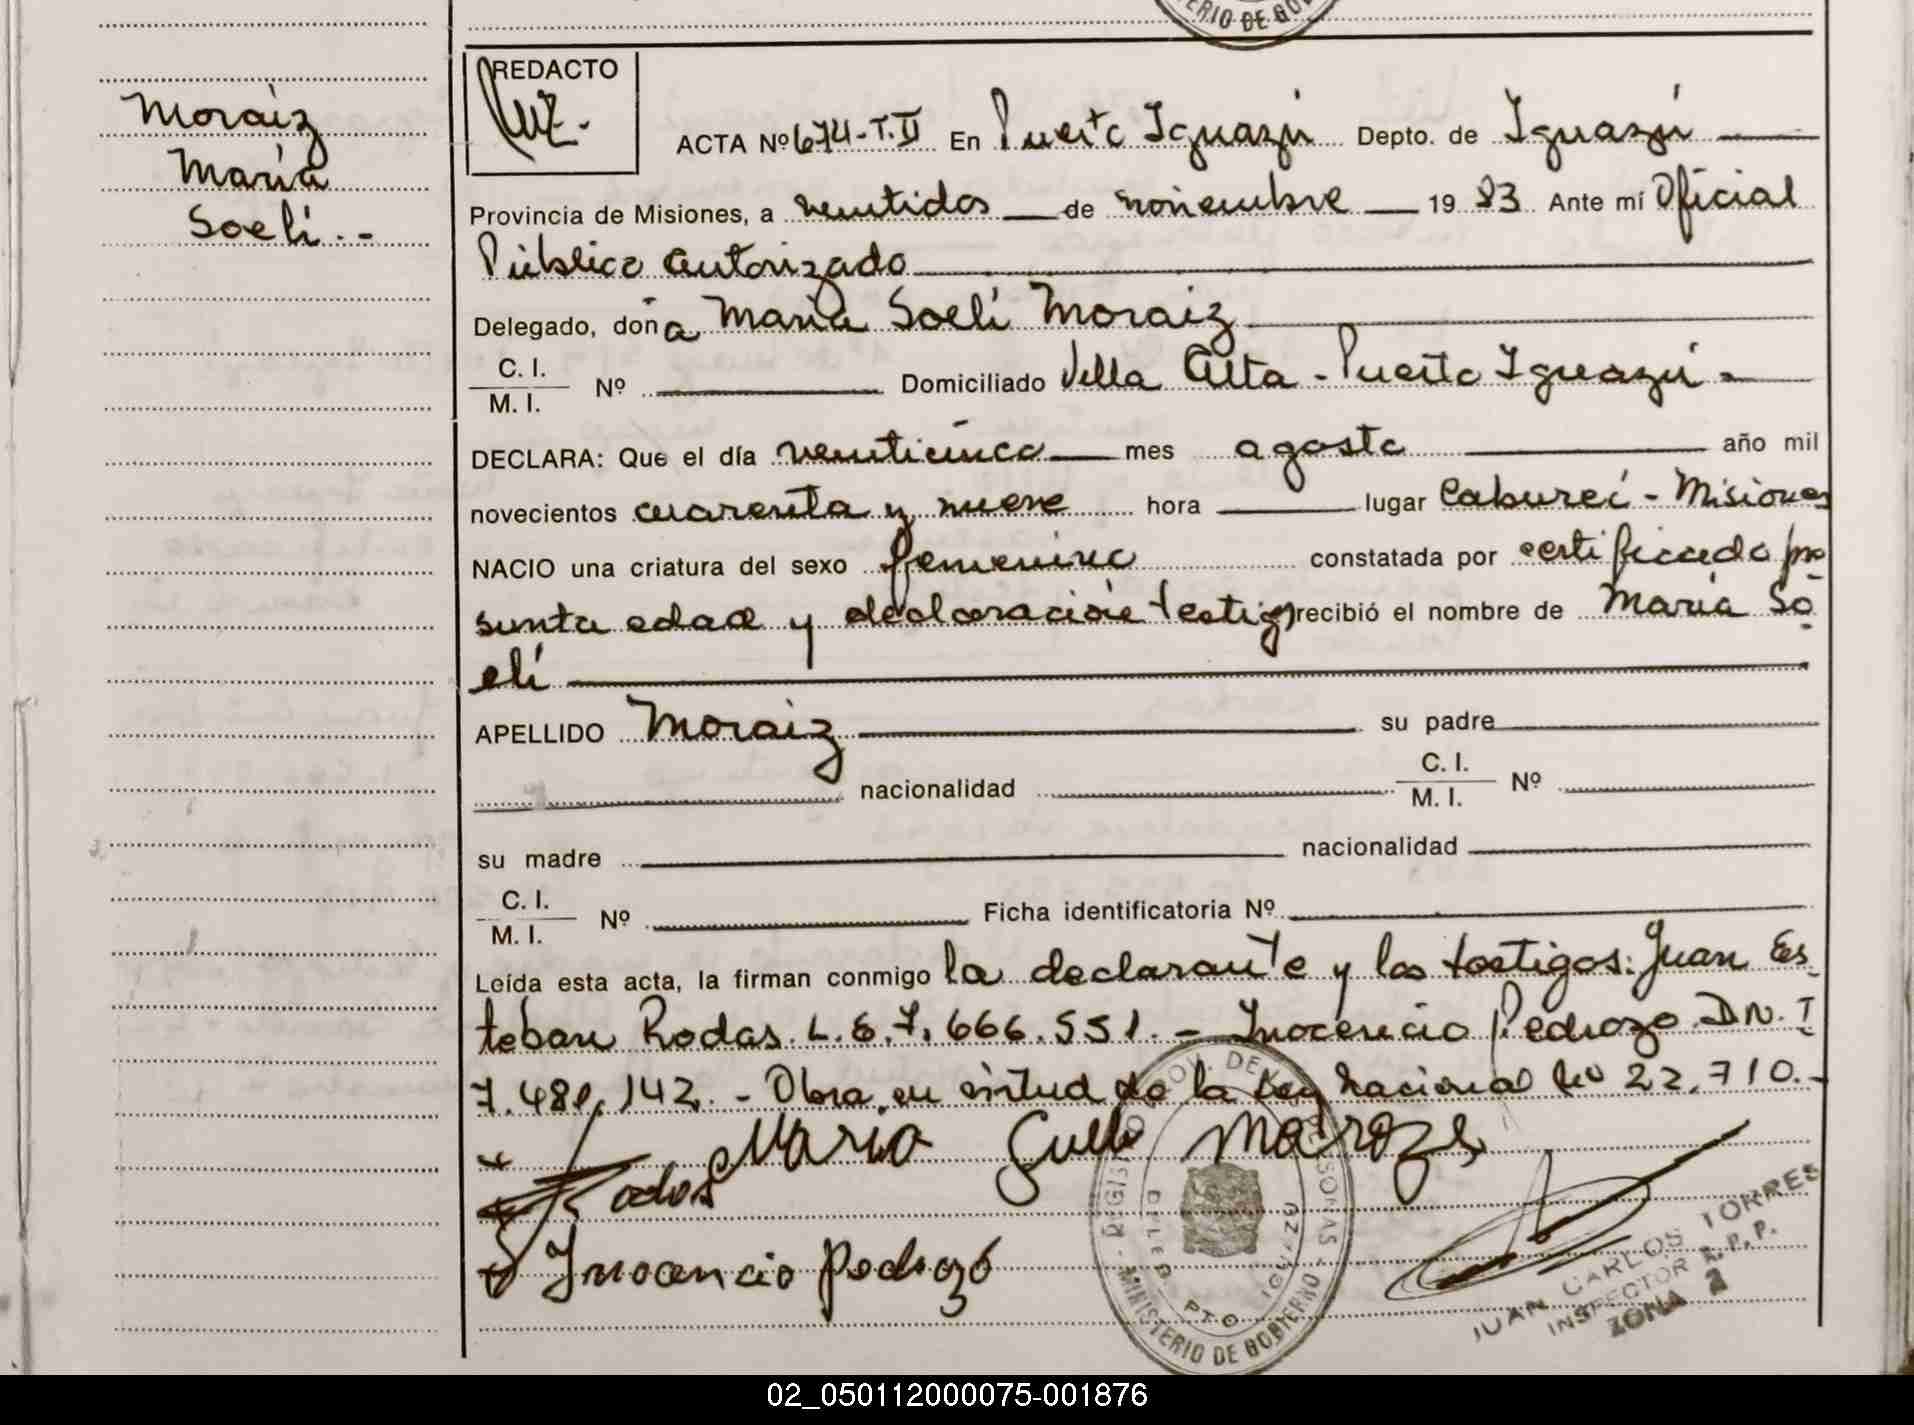 ERIO DE GO
Moraiz
María
Soelí.-
REDACTO
ACTA Nº 674-T.II En Puerto Iguazú Depto. de Iguazú
Provincia de Misiones, a veintidos de noviembre 19 83 Ante mí Oficial
Público autorizado
Delegado, doña María Soelí Moraiz
C. I.
M. I. Nº Domiciliado Villa Alta - Puerto Iguazú -
DECLARA: Que el día veinticinco mes agosto año mil
novecientos cuarenta y nueve hora lugar Cabureí - Misiones
NACIO una criatura del sexo femenino constatada por certificado pre
sunta edad y declaración testigos recibió el nombre de María So
elí
APELLIDO Moraiz su padre
nacionalidad C. I.
M. I. Nº
su madre nacionalidad
C. I.
M. I. Nº Ficha identificatoria Nº
Leída esta acta, la firman conmigo la declarante y los testigos: Juan Es
teban Rodas. L.E. 7.666.551.- Inocencio Pedrozo D.N.I
7.480.142.- Obra en virtud de la Ley Nacional Nº 22.710.-
María
Rodas
Inocencio Pedrozo
REGISTRO PROV. DE LAS PERSONAS - MINISTERIO DE GOBIERNO -
DELEG. PTO. IGUAZU
JUAN CARLOS TORRES
INSPECTOR R.P.P.
ZONA 2
02_050112000075-001876